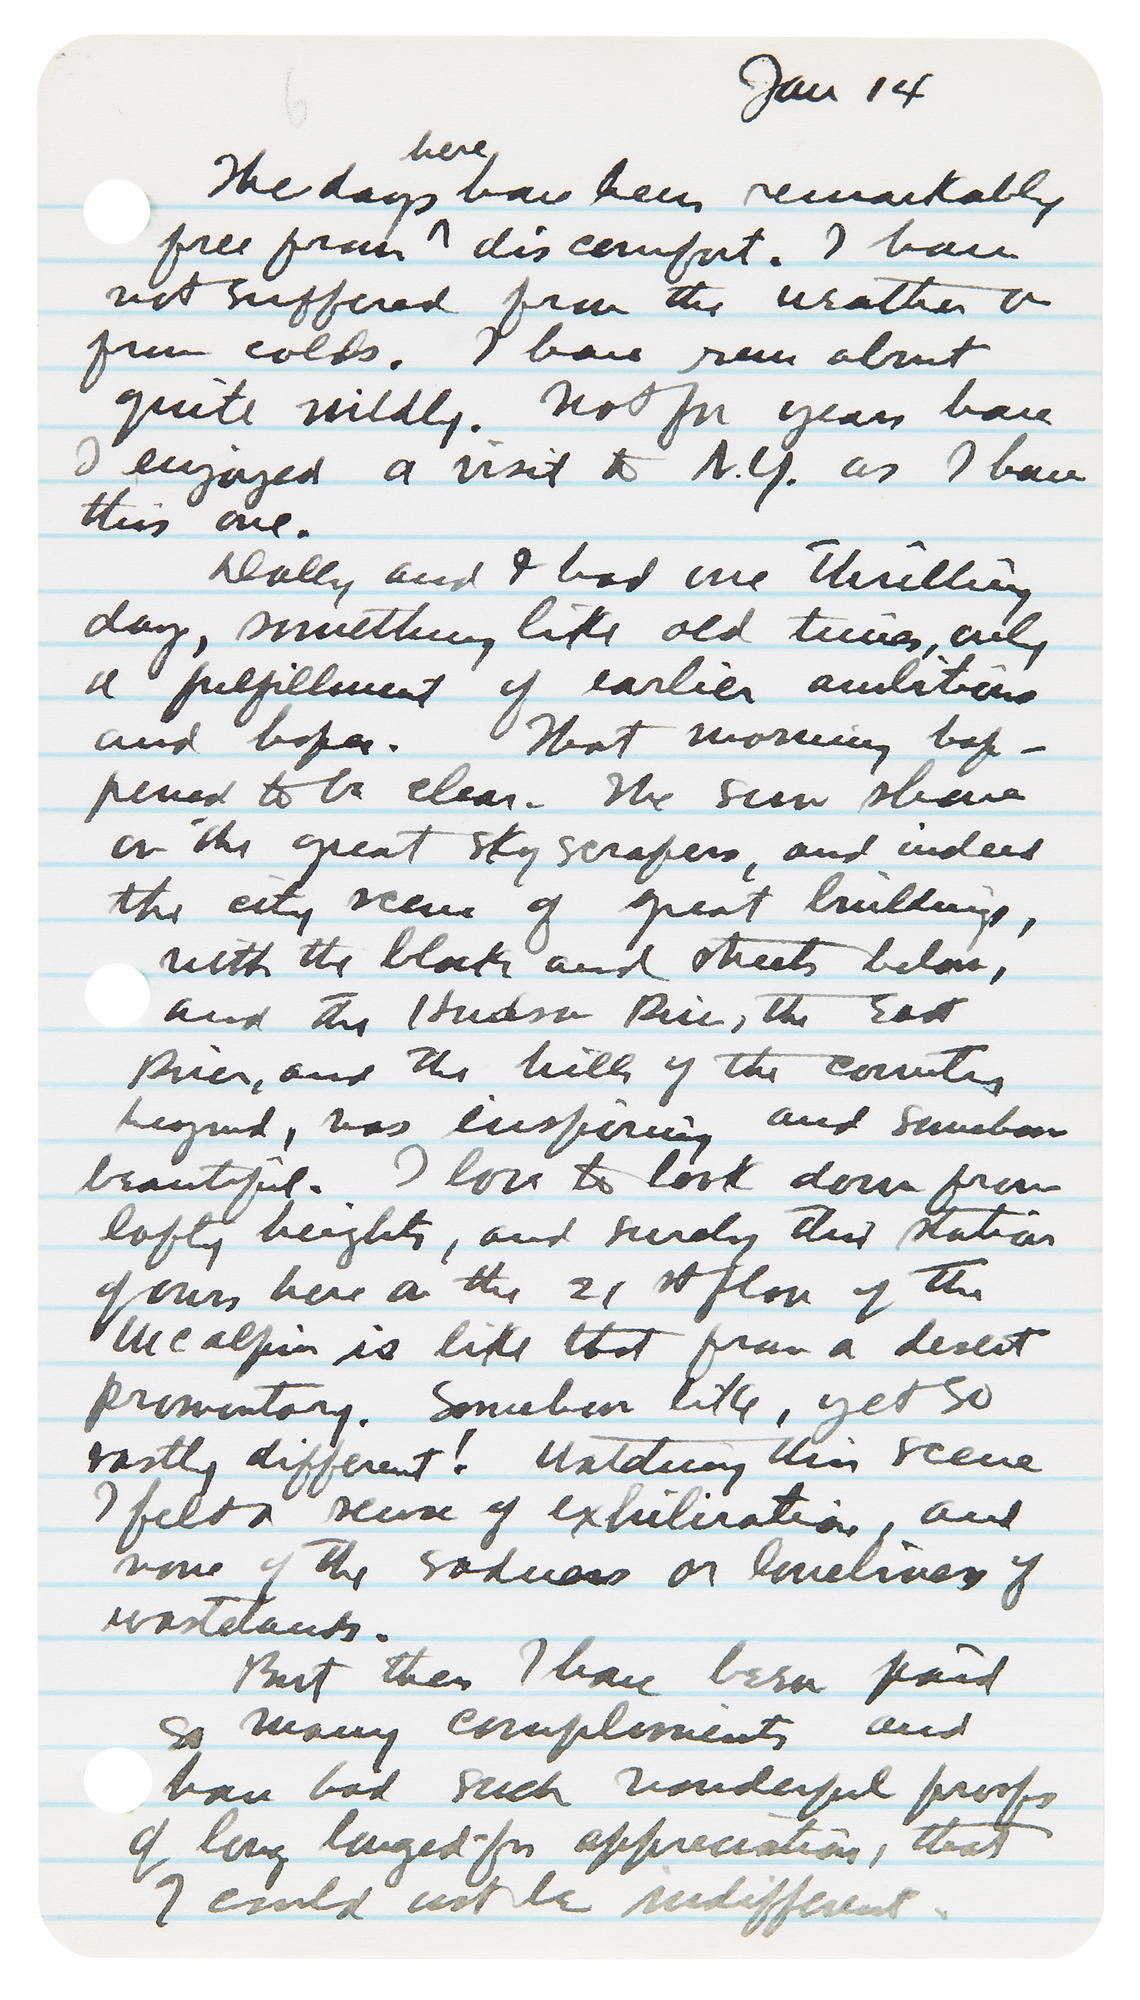 6
Jan 14
here
The days have been remarkably
free from ^ discomfort. I have
not suffered from the weather or
from colds. I have run about
quite wildly. Not for years have
I enjoyed a visit to N.Y. as I have
this one.
Dolly and I had one thrilling
day, something like old times, only
a fulfillment of earlier ambitions
and hopes. That morning hap-
pened to be clear. The sun shone
on the great skyscrapers, and indeed
the city scene of great buildings,
with the blocks and streets below,
and the Hudson River, the East
River, and the hills of the country
beyond, was inspiring and somehow
beautiful. I love to look down from
lofty heights, and surely this station
of ours here on the 21st floor of the
McAlpin is like that from a desert
promontory. Somehow like, yet so
vastly different! Watching this scene
I felt a sense of exhiliration, and
none of the sadness or loneliness of
wastelands.
But then I have been paid
so many compliments and
have had such wonderful proofs
of long longed-for appreciation, that
I could not be indifferent.